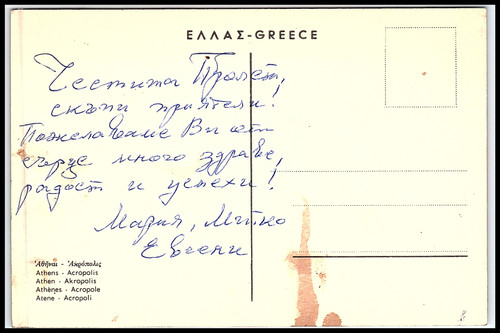 ΕΛΛΑΣ-GREECE
Честита Пролет,
скъпи приятели!
Пожелаваме Ви от
сърце много здраве,
радост и успехи!
Мария, Митко
Евгени
Ἀθῆναι - Ἀκρόπολις
Athens - Acropolis
Athen - Akropolis
Athènes - Acropole
Atene - Acropoli